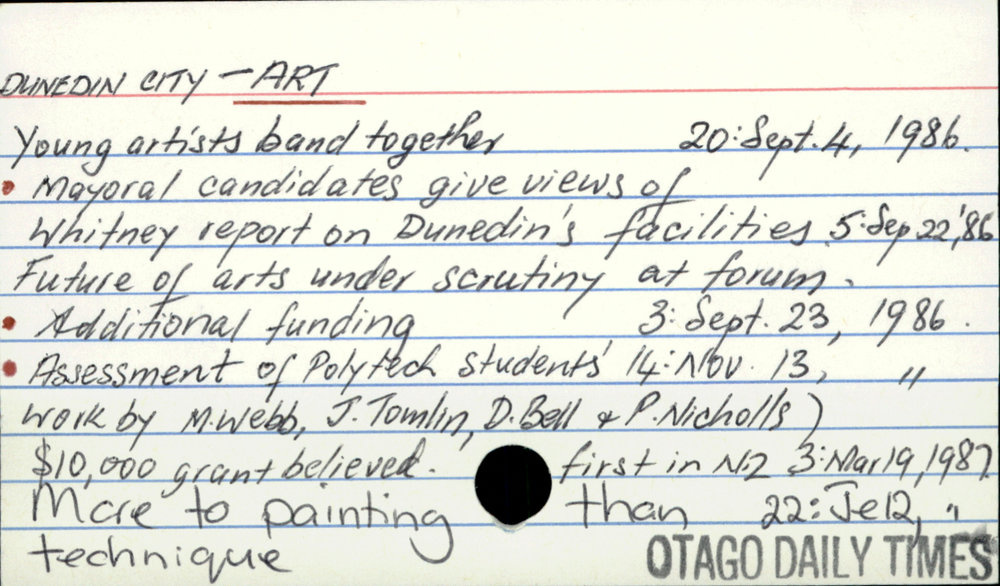 DUNEDIN CITY - ART
Young artists band together 20: Sept. 4, 1986.
• Mayoral candidates give views of
Whitney report on Dunedin's facilities 5: Sep 22, '86
Future of arts under scrutiny at forum.
• Additional funding 3: Sept. 23, 1986.
• Assessment of Polytech students' 14: Nov. 13, "
work by M. Webb, J. Tomlin, D. Bell & P. Nicholls)
$10,000 grant believed. first in NZ 3: Mar 19, 1987.
More to painting than 22: Je 12, "
technique
OTAGO DAILY TIMES